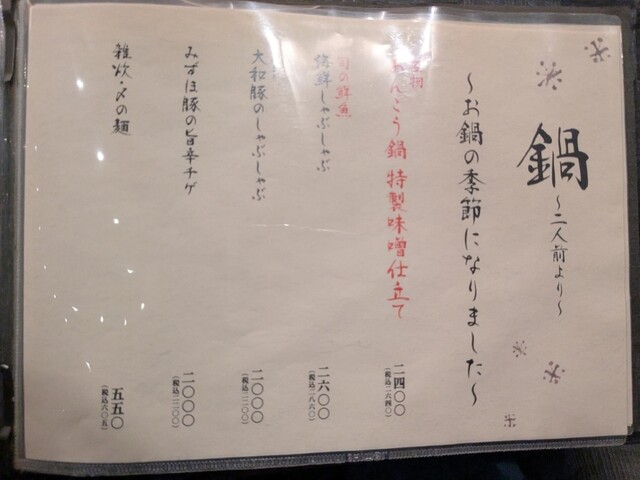 鍋
～二人前より～
～お鍋の季節になりました～
あんこう鍋 特製味噌仕立て
二四〇〇
(税込二六四〇)
旬の鮮魚
海鮮しゃぶしゃぶ
二六〇〇
(税込二八六〇)
大和豚のしゃぶしゃぶ
二〇〇〇
(税込二二〇〇)
みずほ豚の旨辛チゲ
二〇〇〇
(税込二二〇〇)
雑炊・〆の麺
五五〇
(税込六〇五)